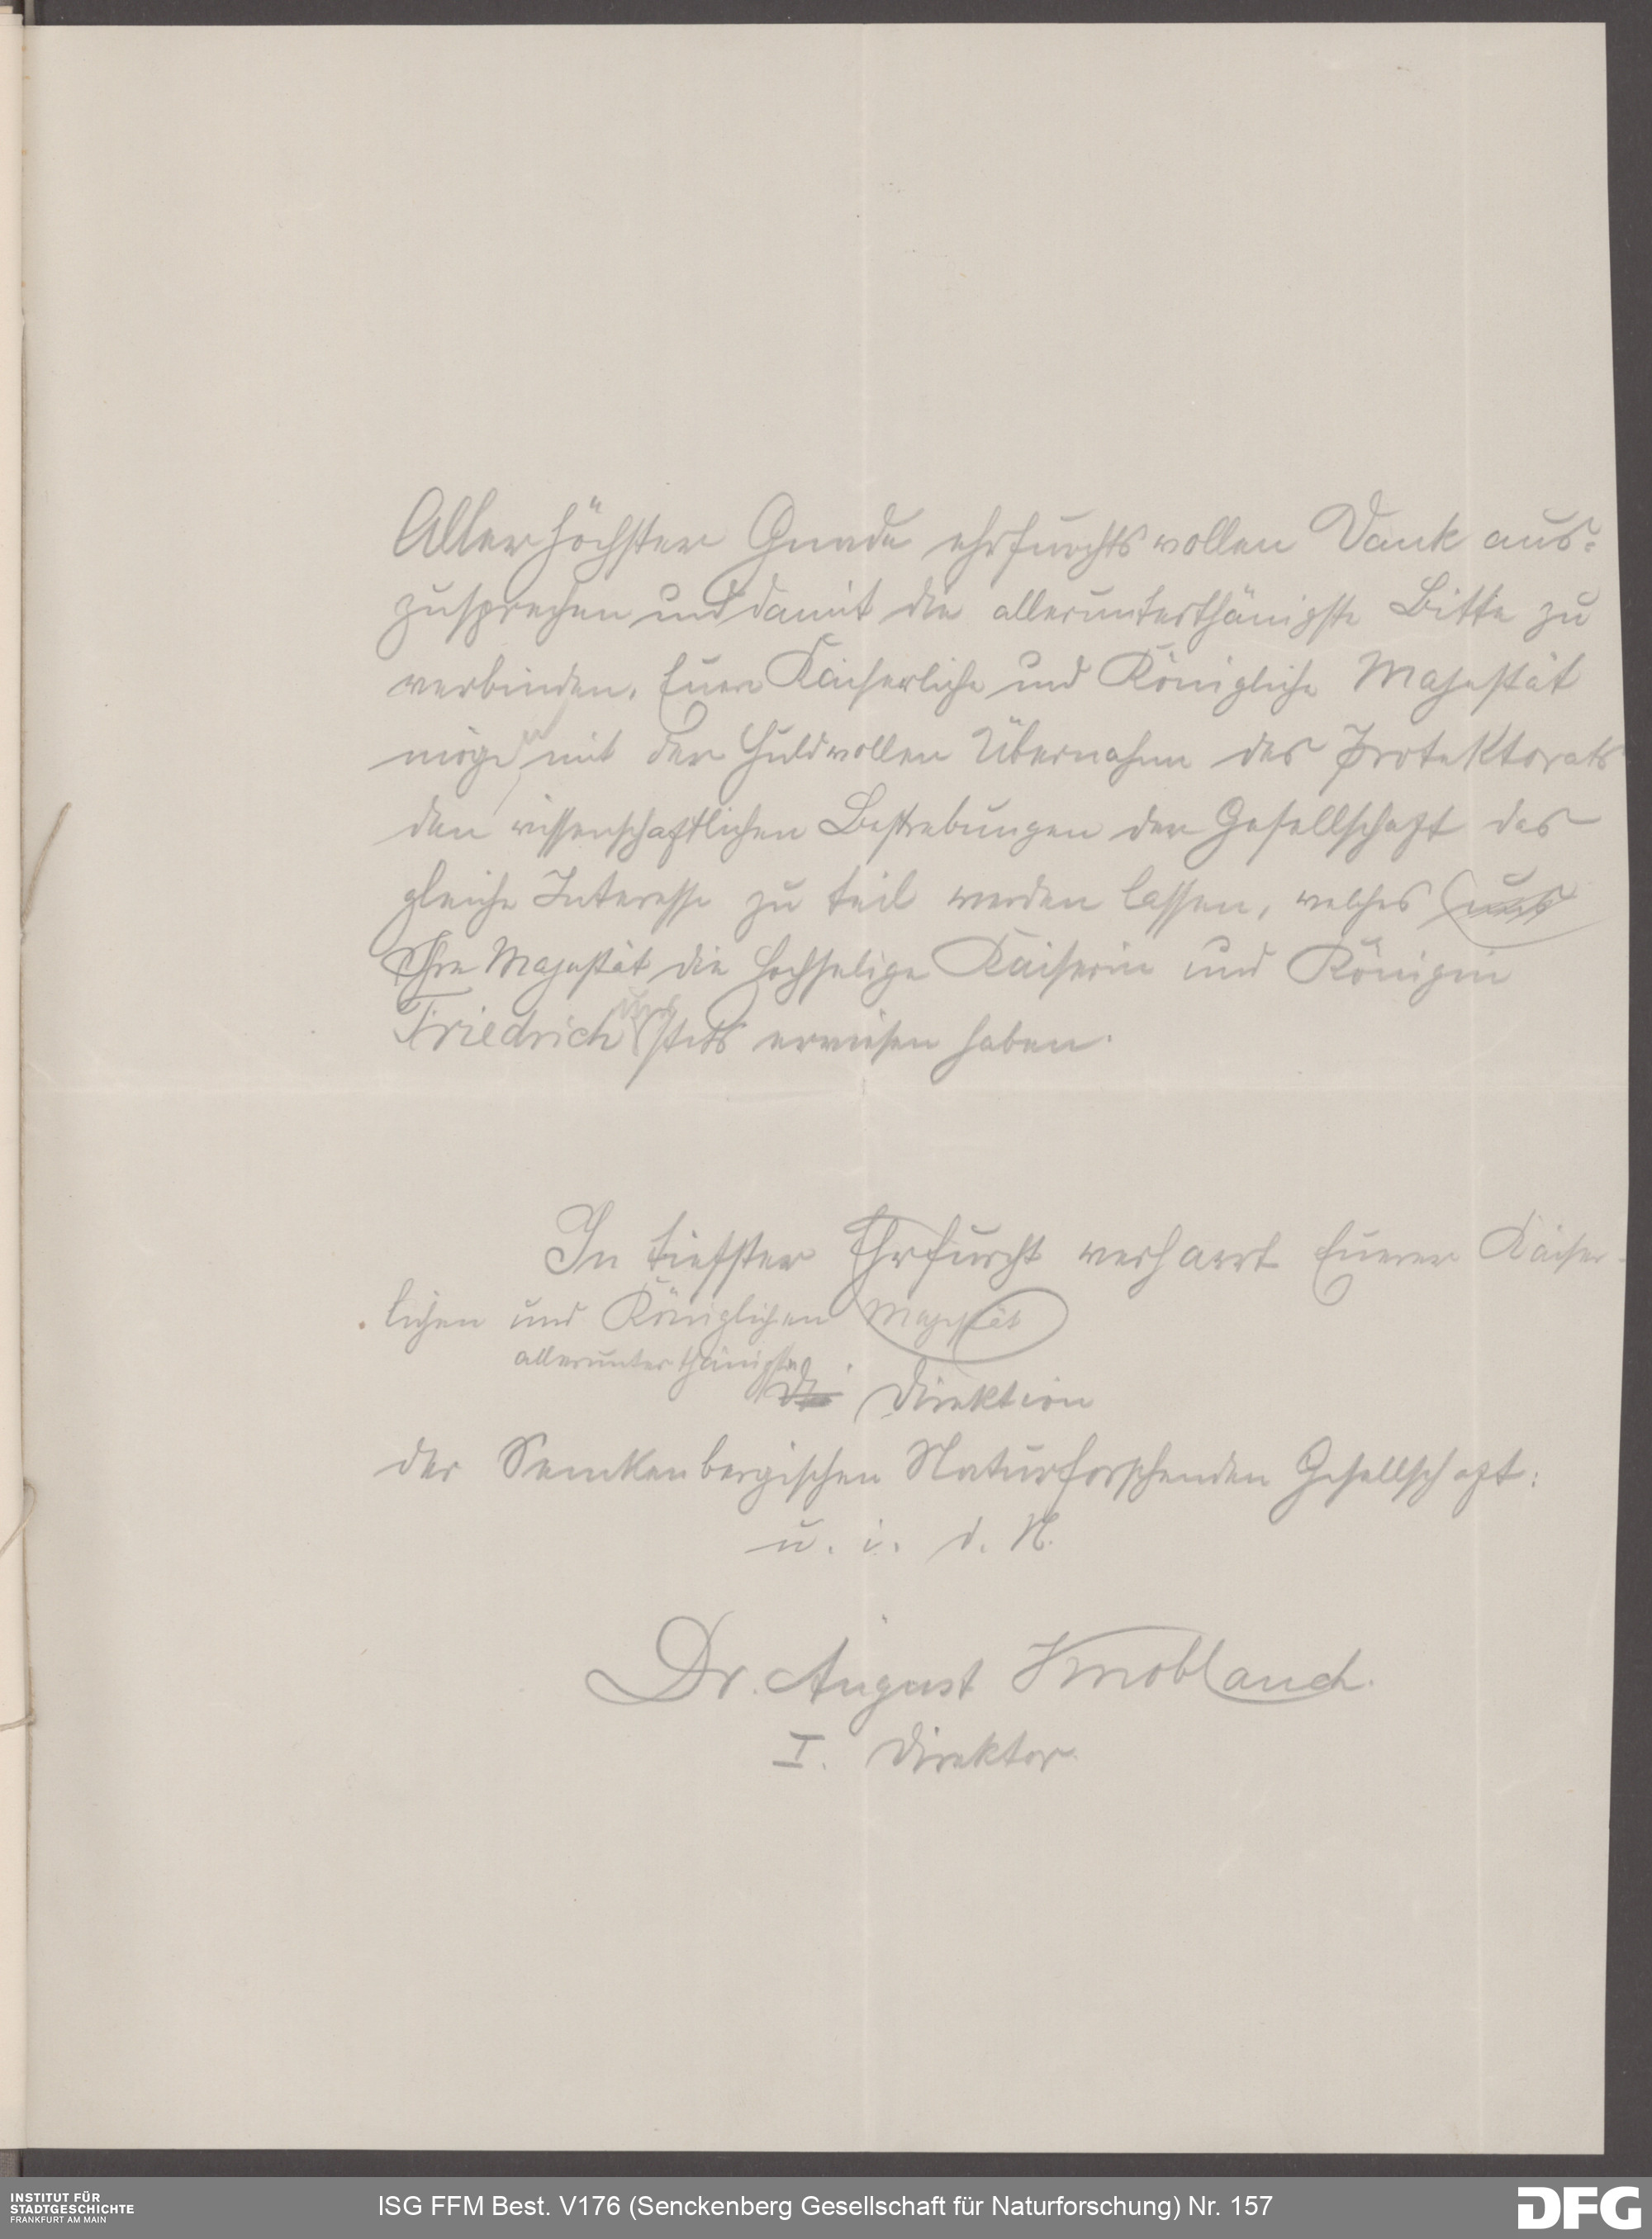 Allerhöchster Gnade ehrfurchtsvollen Dank aus-
zusprechen und damit die allerunterthänigste Bitte zu
verbinden, Euere Kaiserliche und Königliche Majestät
möge mit der huldvollen Übernahme des Protektorats
den wissenschaftlichen Bestrebungen der Gesellschaft das
gleiche Interesse zu teil werden lassen, welches uns
Ihre Majestät die hochselige Kaiserin und Königin
Friedrich uns stets erwiesen haben.
In tiefster Ehrfurcht verharrt Euerer Kaiser-
lichen und Königlichen Majestät
allerunterthänigste
die Direktion
der Senckenbergischen Naturforschenden Gesellschaft:
u. i. d. N.
Dr. August Knoblauch.
I. Direktor.
INSTITUT FÜR
STADTGESCHICHTE
FRANKFURT AM MAIN
ISG FFM Best. V176 (Senckenberg Gesellschaft für Naturforschung) Nr. 157
DFG